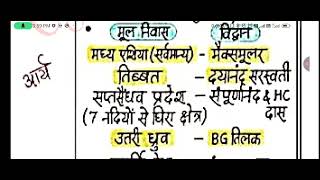 मूल निवास विद्वान
आर्य
मध्य एशिया (सर्वमान्य) - मैक्समूलर
तिब्बत - दयानंद सरस्वती
सप्तसैंधव प्रदेश - संपूर्णानंद & HC
(7 नदियों से घिरा क्षेत्र) दास
उतरी ध्रुव - BG तिलक